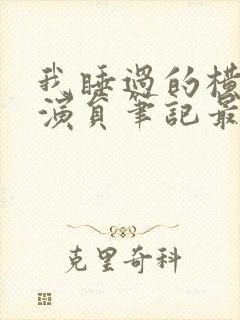 我睡過的横
演員筆記最
克里奇科